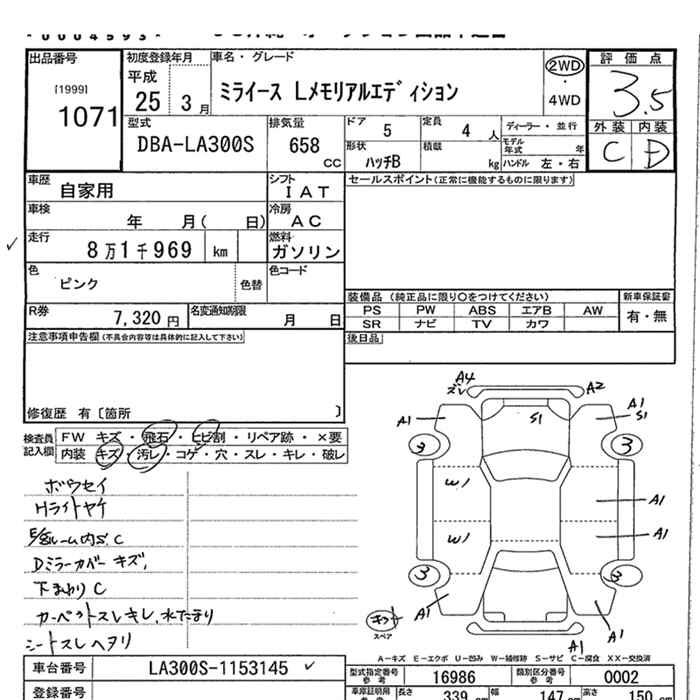 出品番号
[1999]
1071
初度登録年月
平成
25 3 月
車名・グレード
ミライース Lメモリアルエディション
2WD
・
4WD
評価点
3.5
外装 内装
C D
型式
DBA-LA300S
排気量
658
CC
ドア 5
定員 4 人
形状 ハッチB
積載 kg
ディーラー・並行
モデル年式 年
ハンドル 左・右
車歴 自家用
シフト IAT
車検 年 月( 日)
冷房 AC
走行 8万1千969 km
燃料 ガソリン
色 ピンク
色替
色コード
R券 7,320 円
名変通知期限 月 日
セールスポイント(正常に機能するものに限ります)
装備品 (純正品に限り○をつけてください)
新車保証書
PS PW ABS エアB AW
SR ナビ TV カワ
有・無
後日品
注意事項申告欄(不具合内容等は具体的に記入して下さい)
修復歴 有〔箇所 〕
検査員記入欄
FW キズ・飛石・ヒビ割・リペア跡・×要
内装 キズ・汚レ・コゲ・穴・スレ・キレ・破レ
ボウセイ
Hライトヤケ
Dミラーカバーキズ
下まわりC
カーペットスレキレ,水たまり
シートスレヘタリ
A4
ズレ
A2
A1
S1
A1
S1
3
3
W1
A1
W1
A1
3
3
A1
A1
A1
スペア
A-キズ E-エクボ U-凹み W-補修跡 S-サビ C-腐食 XX-交換済
車台番号 LA300S-1153145
型式指定番号 参考 16986
類別区分番号 参考 0002
登録番号
車庫証明用 参考
長さ 339 cm
幅 147 cm
高さ 150 cm